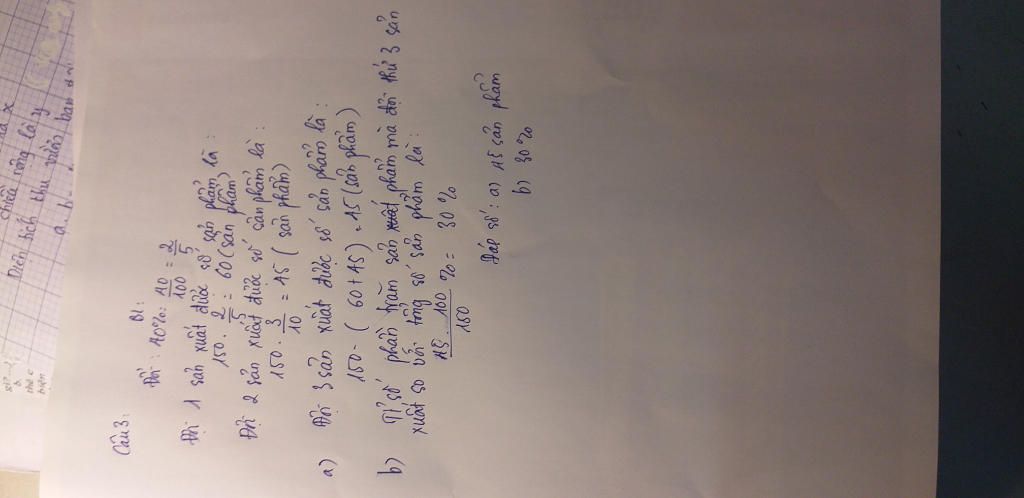 chiều rộng là y
Diện tích thư viện ban
Câu 3:
Bl:
Đổi: 40% = 40/100 = 2/5
Đội 1 sản xuất được số sản phẩm là:
150 . 2/5 = 60 (sản phẩm)
Đội 2 sản xuất được số sản phẩm là:
150 . 3/10 = 45 (sản phẩm)
a) Đội 3 sản xuất được số sản phẩm là:
150 - (60 + 45) = 45 (sản phẩm)
b) Tỉ số phần trăm sản xuất phẩm mà đội thứ 3 sản
xuất so với tổng số sản phẩm là:
45 . 100/150 % = 30%
Đáp số: a) 45 sản phẩm
b) 30%